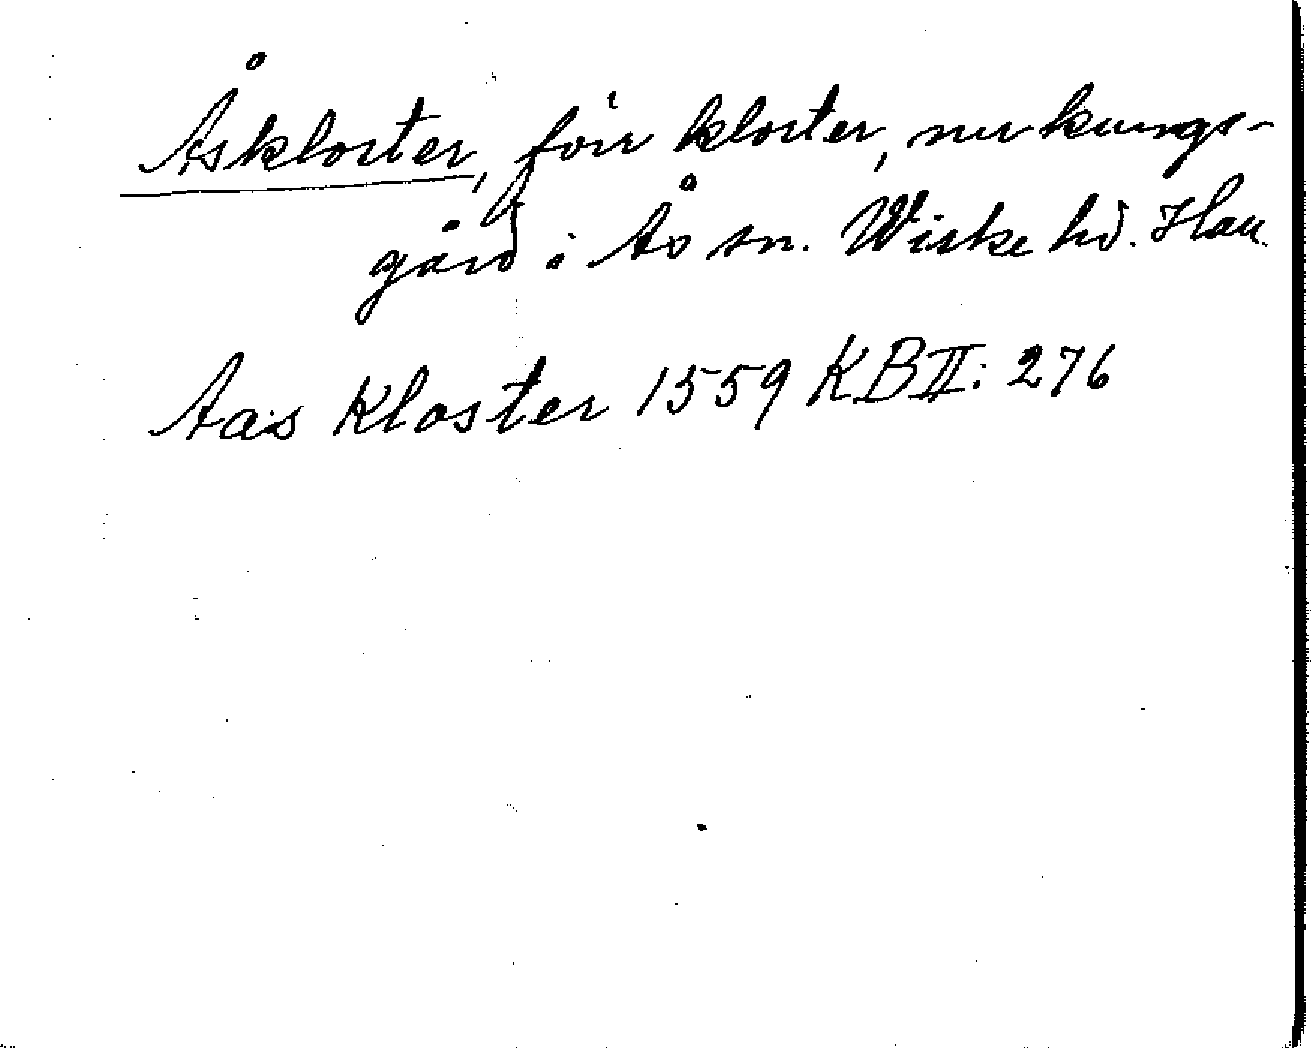 Åskloster, förr kloster, nu kungs-
gård i Ås sn. Wiske hd. Hall.
Aas Kloster 1559 KB II: 276